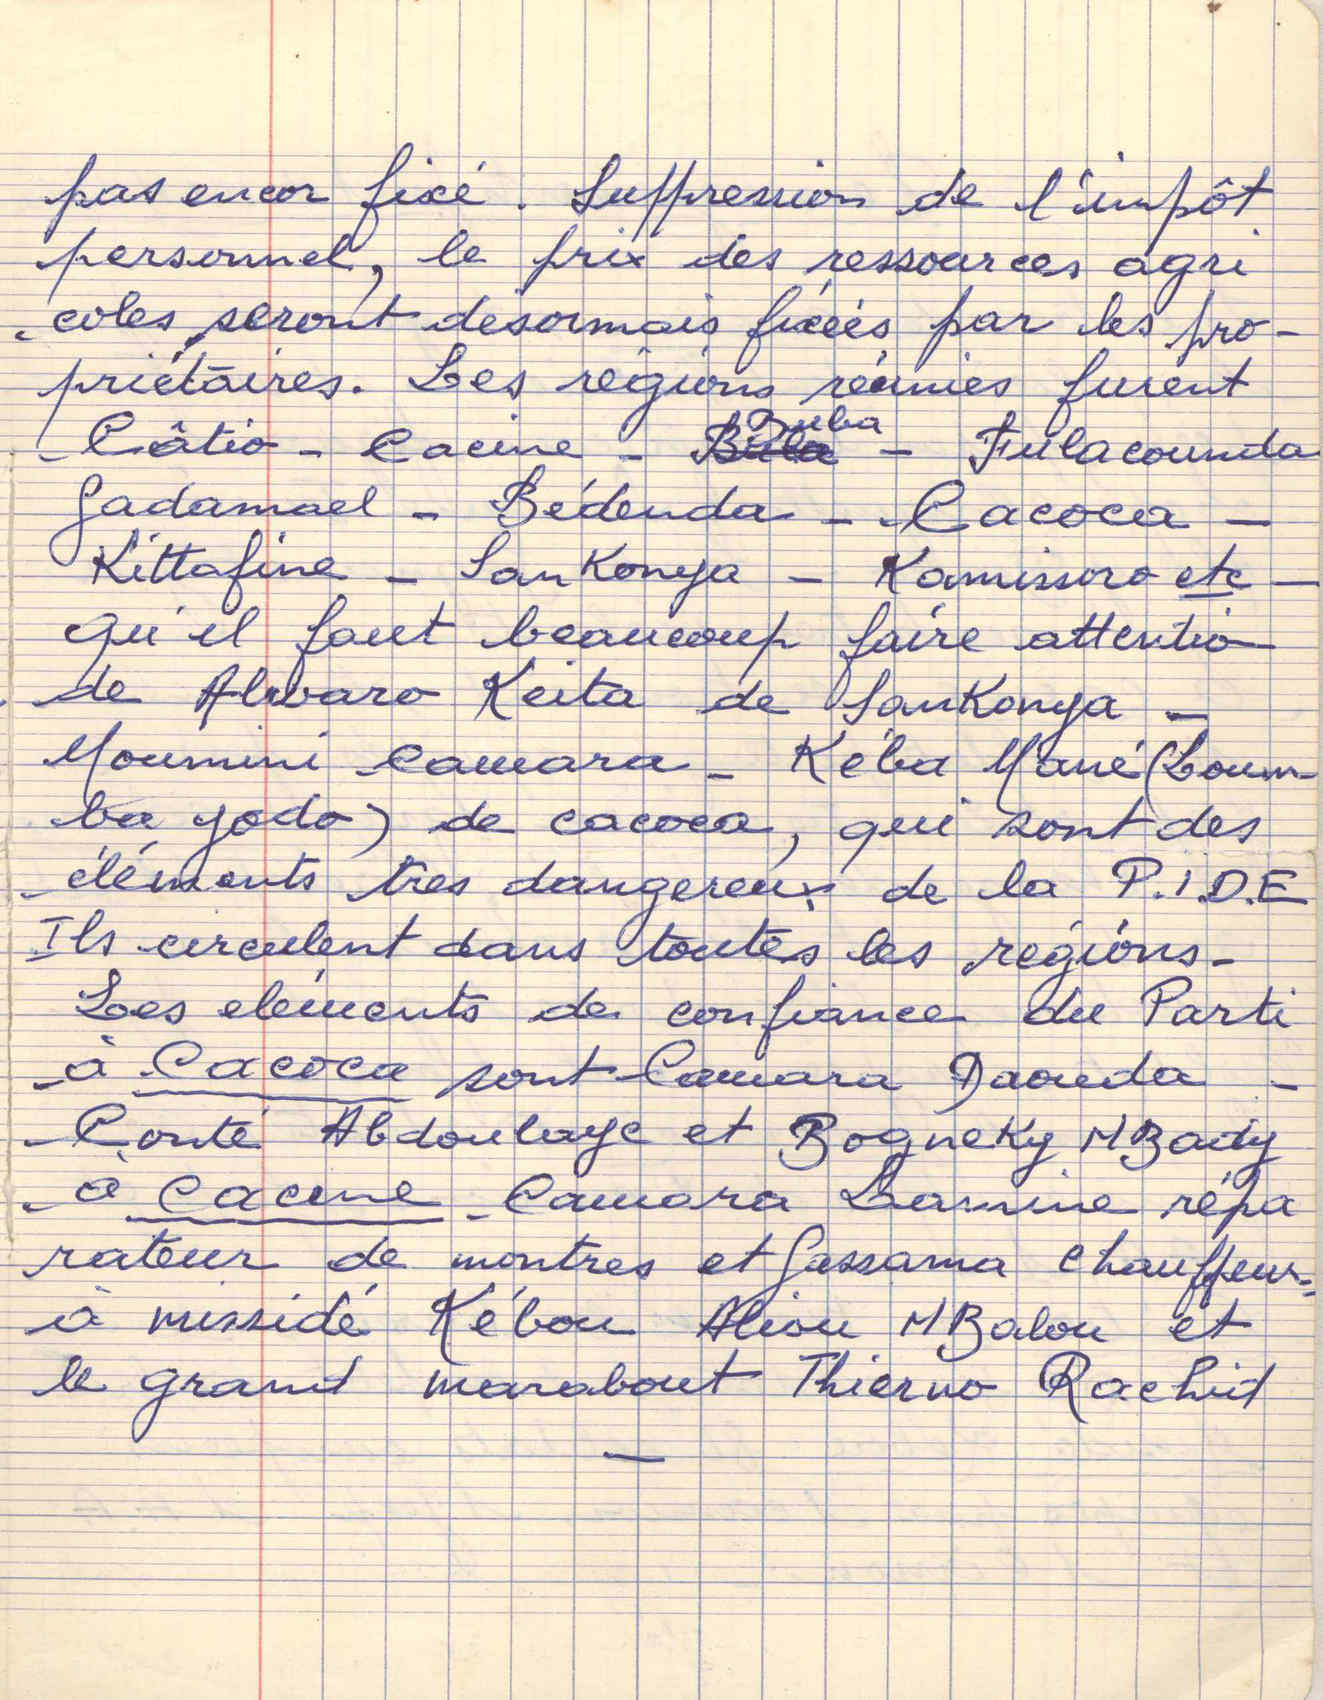 pas encor fixé. Suppression de l'impôt
personnel, le prix des ressources agri
coles seront desormais fixés par les pro-
priétaires. Les régions réunies furent
Câtio - Cacine - Bula Buba - Fulacounda
Gadamael - Bédenda - Cacoca -
Kittafine - SanKonya - Kamissoro etc -
qu'il faut beaucoup faire attentio
de Alvaro Keita de SanKonya -
Moumini Camara - Kéba Mané (Loum-
ba yodo) de cacoca, qui sont des
éléments tres dangereux de la P.I.D.E
Ils circulent dans toutes les régions -
Les eléments de confiance du Parti
à Cacoca sont Camara Daouda -
Conté Abdoulaye et BogneKy MBady
à Cacine Camara Lamine répa
rateur de montres et Gassama chauffeur-
à missidé Kébou Aliou MBalou et
le grand marabout Thierno Rachid